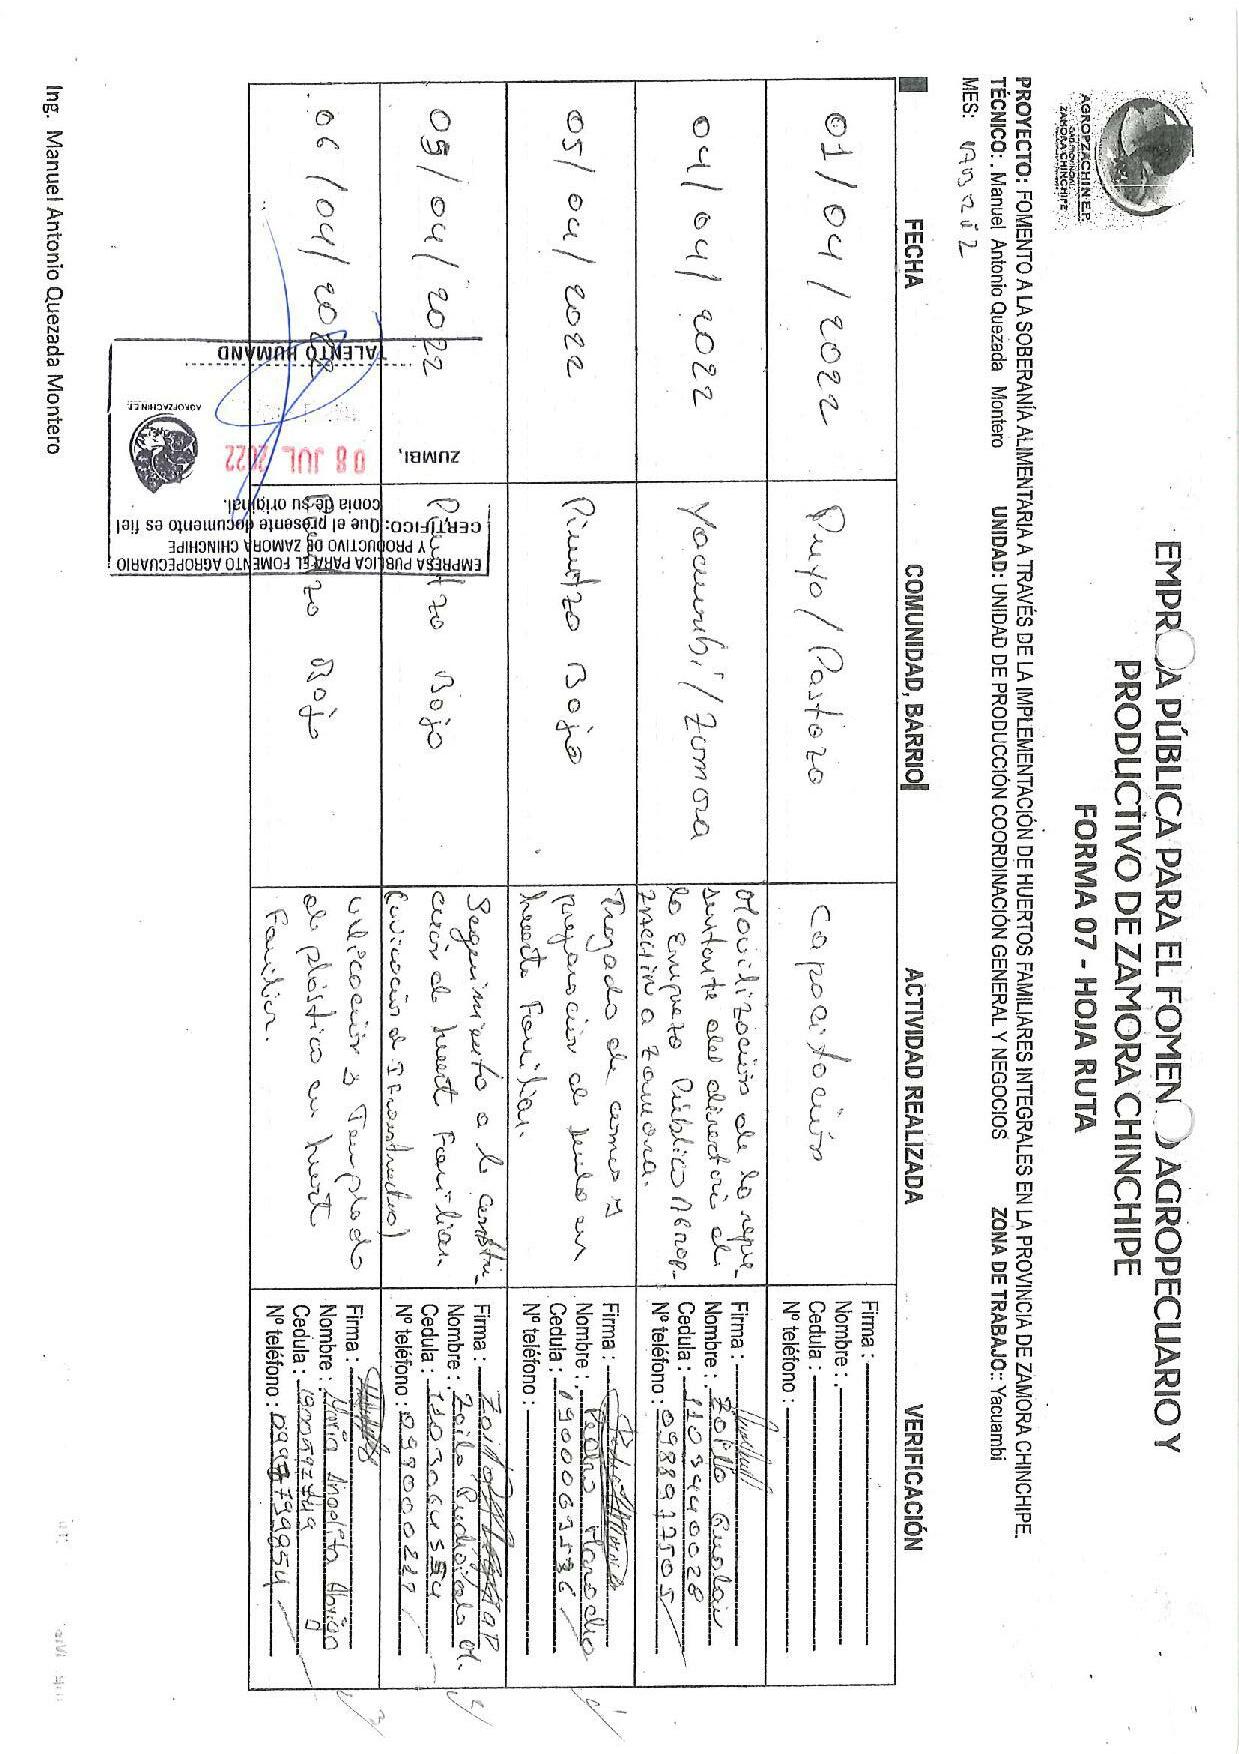 AGROPZACHIN E.P.
ZAMORA CHINCHIPE
EMPR A PÚBLICA PARA EL FOMEN O AGROPECUARIO Y
PRODUCTIVO DE ZAMORA CHINCHIPE
FORMA 07 - HOJA RUTA
PROYECTO: FOMENTO A LA SOBERANÍA ALIMENTARIA A TRAVÉS DE LA IMPLEMENTACIÓN DE HUERTOS FAMILIARES INTEGRALES EN LA PROVINCIA DE ZAMORA CHINCHIPE.
TÉCNICO: . Manuel Antonio Quezada Montero UNIDAD: UNIDAD DE PRODUCCIÓN COORDINACIÓN GENERAL Y NEGOCIOS ZONA DE TRABAJO:: Yacuambi
MES:
FECHA COMUNIDAD, BARRIO ACTIVIDAD REALIZADA VERIFICACIÓN
01/04/2022 Puyo/Pastaza Capacitación
Firma :
Nombre :
Cedula :
Nº teléfono :
04/04/2022 Yacuambi/Zamora
Movilización de la repre-
sentante del directorio de
la Empresa Pública Agrop-
zachin a Zamora.
Firma :
Nombre :
Cedula : 1103440028
Nº teléfono : 0988917505
05/04/2022 Piuntza Bajo
Trazado de camas y
preparación de suelo en
huerto Familiar.
Firma :
Nombre : Pedro
Cedula :
Nº teléfono :
05/04/2022 Bajo
Seguimiento a la constru-
cción de huert Familiar.
Firma :
Nombre : Zoila
Cedula :
Nº teléfono : 0990000227
06/04/2022 Bajo
Ubicación y Templado
de plástico en huert
Familiar.
Firma :
Nombre : María Angelita Abrigo
Cedula :
Nº teléfono :
EMPRESA PUBLICA PARA EL FOMENTO AGROPECUARIO
Y PRODUCTIVO DE ZAMORA CHINCHIPE
CERTIFICO: Que el presente documento es fiel
copia de su original.
ZUMBI, 08 JUL 2022
AGROPZACHIN E.P.
TALENTO HUMANO
Ing. Manuel Antonio Quezada Montero